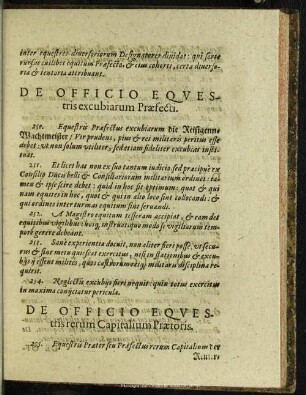 inter equestres diversoriorum Designatores dividat: qui sorte
rursus cuilibet equitum Præfecto, & ejus cohorti, certa diverso-
ria & tentoria attribuant.
DE OFFICIO EQVES-
tris excubiarum Præfecti.
250. Equestris Præfectus excubiarum die Reisigenn
Wachtmeister / Vir prudens, pius & rei militaris peritus esse
debet: ut non solum utiliter, sed etiam fideliter excubias insti-
tuat.
251. Et licet hac non ex suo tantum iudicio sed præcipuè ex
Consilio Ducis belli & Consiliariorum militarium ordinet: ta-
men & ipse scire debet: quid in hoc sit optimum: quot & qui
nam equites in hoc, quot & qui in alio loco sint collocandi: &
qui ordines inter turmas equitum sint servandi.
252. A Magistro equitum tesseram accipiat, & eam det
equestribus vigilibus: hosq; instruat quo modo se vigiliarum tem-
pore gerere debeant.
253. Sanè experientia docuit, non aliter fieri posse, ut secu-
rus & sine metu quiescat exercitus, nisi in stationibus & excu-
bijs ij essent milites, quos castrorum ratio & militaris disciplina re-
quirit.
254. Neglectis excubijs fieri nequit: quin totus exercitus
in maxima conijciatur pericula.
DE OFFICIO EQVES-
tris rerum Capitalium Prætoris.
255. Equestris Prætor seu Præfectus rerum Capitalium der